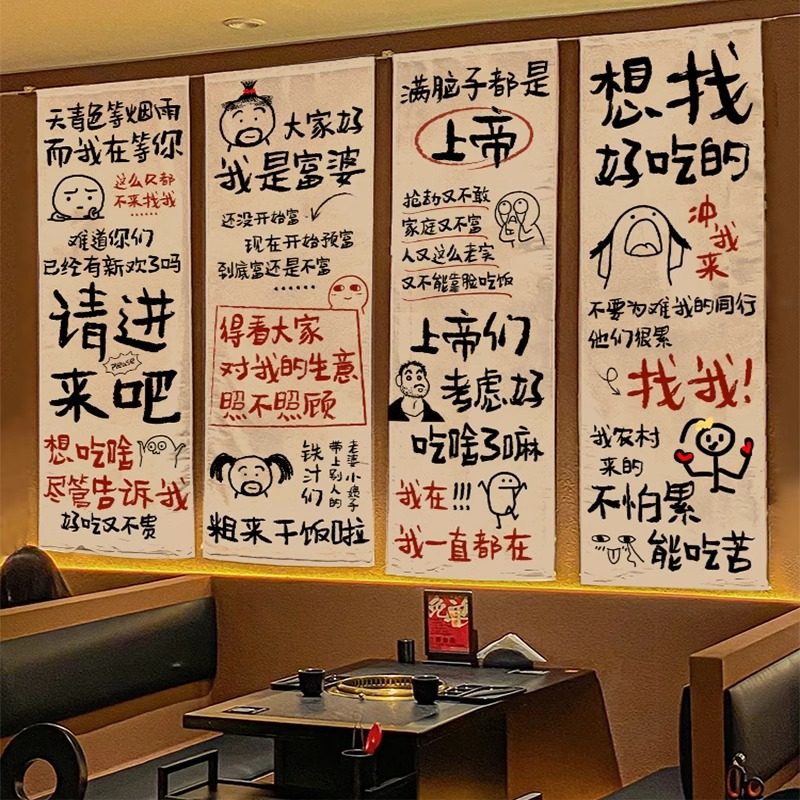 天青色等烟雨
而我在等你
这么久都
不来找我
......
难道你们
已经有新欢了吗
请进
please
来吧
想吃啥
尽管告诉我
好吃又不贵
大家好
我是富婆
还没开始富
现在开始预富
到底富还是不富
......
得看大家
对我的生意
照不照顾
铁汁们
带上别人的
老婆小孩子
粗来干饭啦
满脑子都是
上帝
抢劫又不敢
家庭又不富
人又这么老实
又不能靠脸吃饭
上帝们
考虑好
吃啥了嘛
我在!!!
我一直都在
想找
好吃的
冲我来
不要为难我的同行
他们很累
找我!
我农村
来的
不怕累
能吃苦
免单